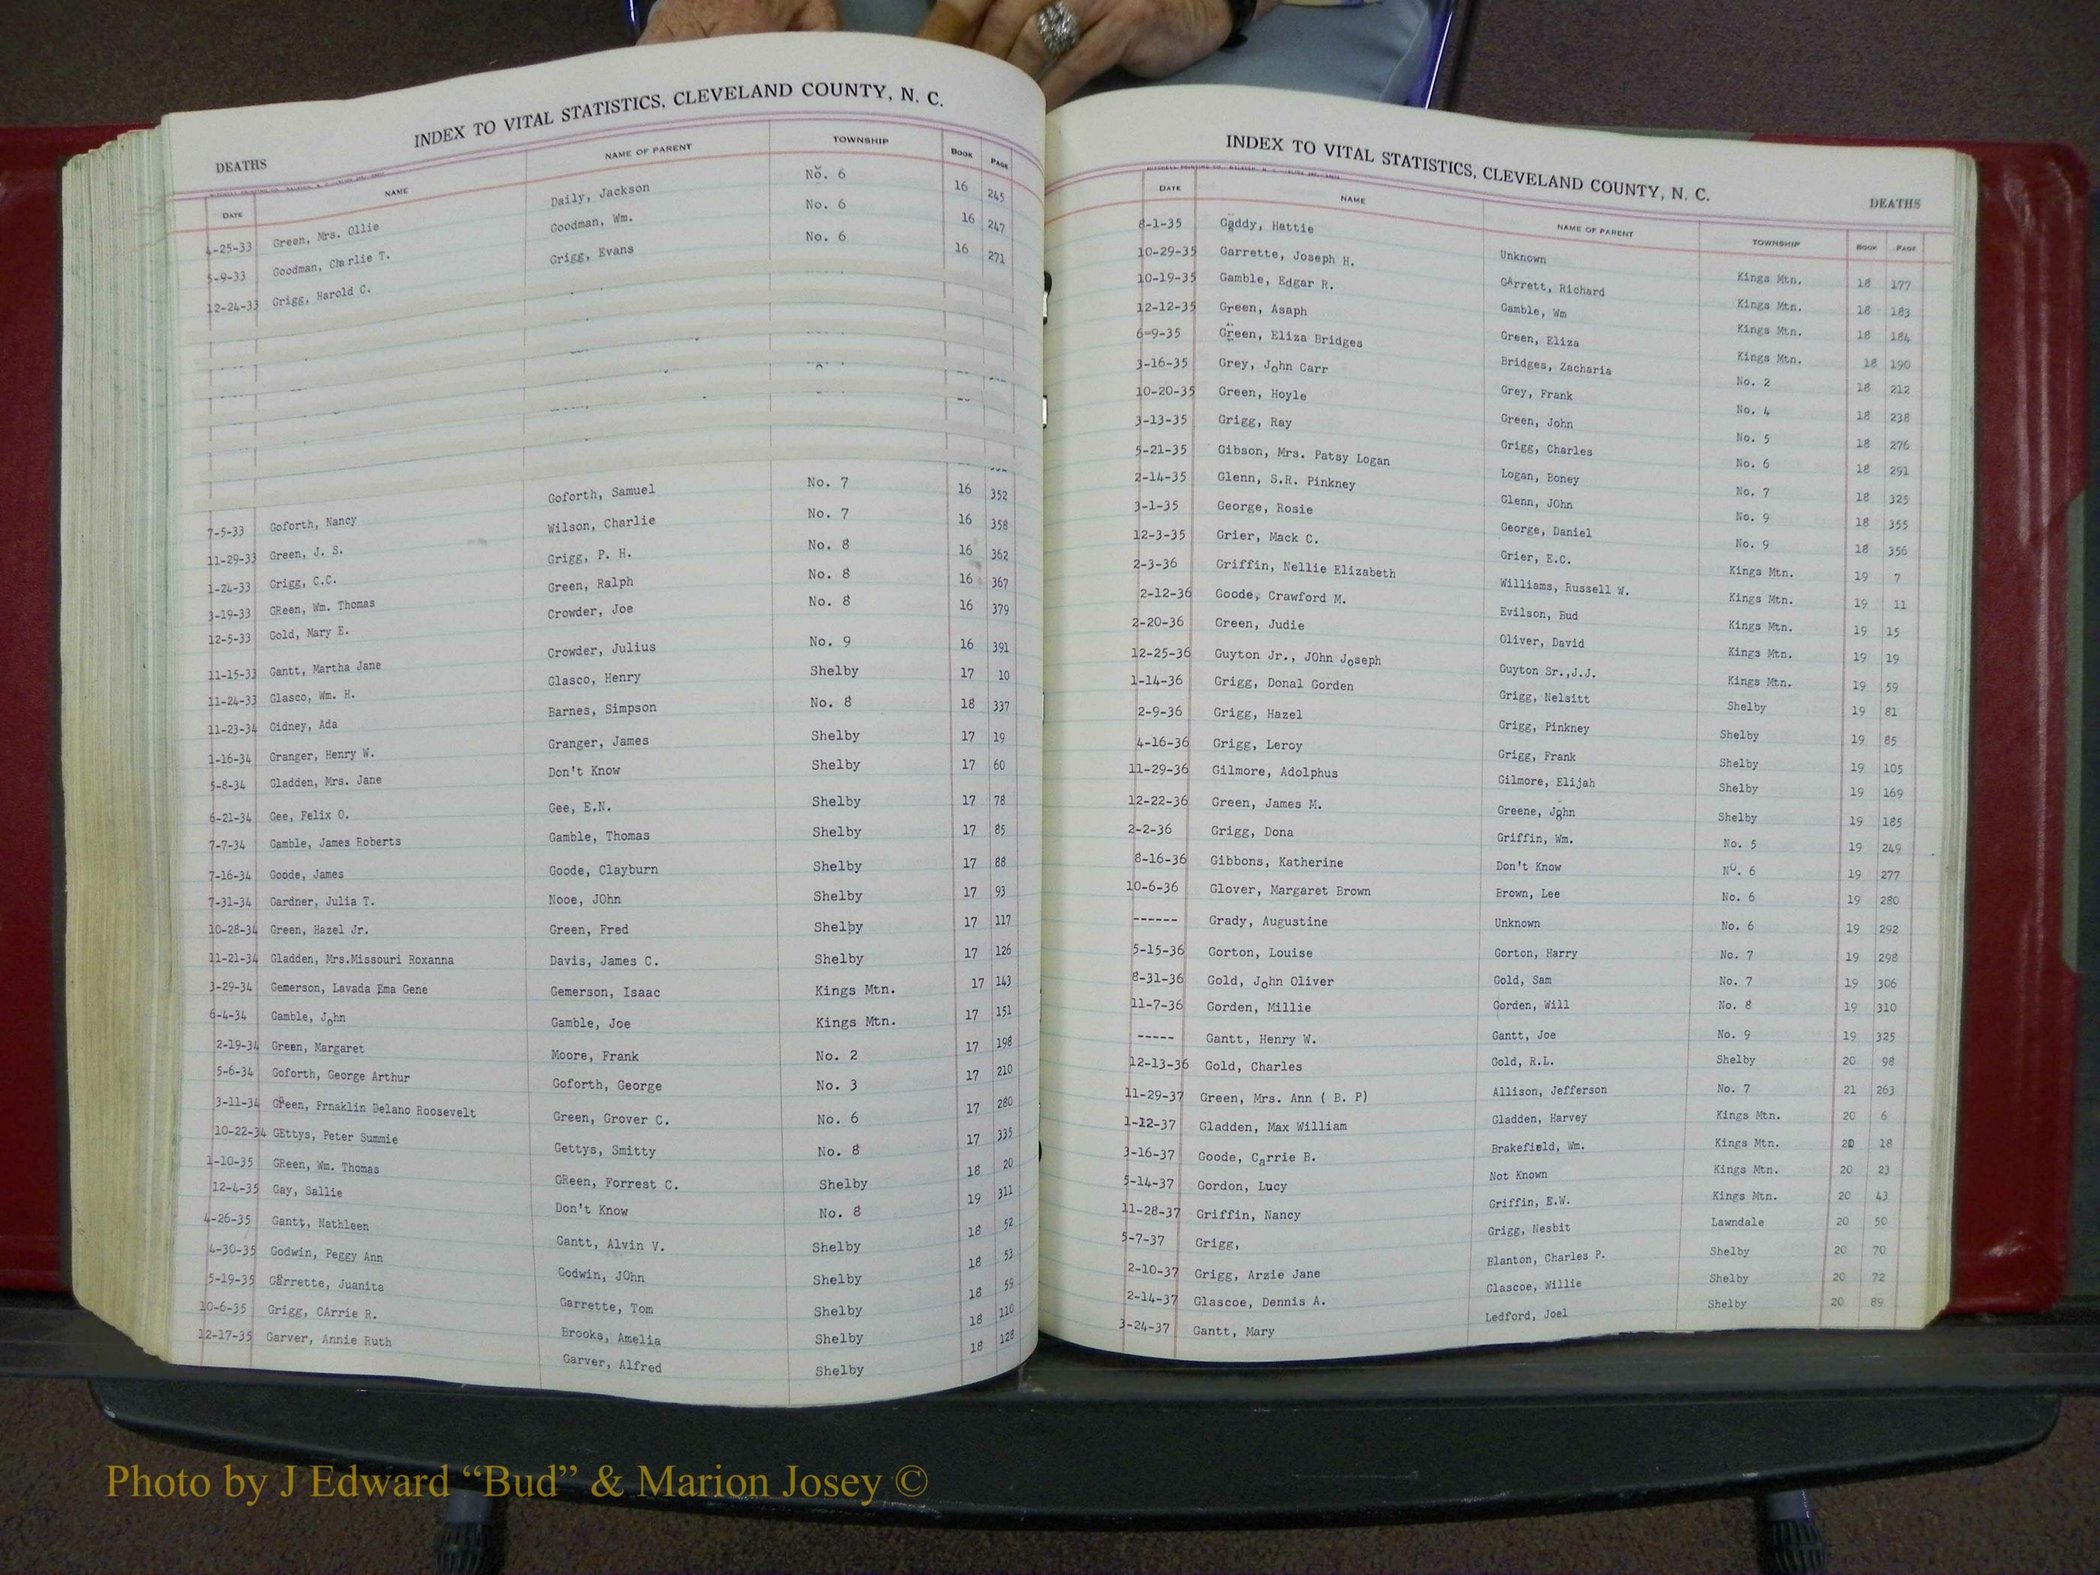 INDEX TO VITAL STATISTICS, CLEVELAND COUNTY, N. C.
DEATHS
DATE NAME NAME OF PARENT TOWNSHIP BOOK PAGE
4-25-33 Green, Mrs. Ollie Daily, Jackson No. 6 16 245
5-9-33 Goodman, Charlie T. Goodman, Wm. No. 6 16 247
12-24-33 Grigg, Harold C. Grigg, Evans No. 6 16 271
7-5-33 Goforth, Nancy Goforth, Samuel No. 7 16 352
11-29-33 Green, J. S. Wilson, Charlie No. 7 16 358
1-24-33 Grigg, C.C. Grigg, P. H. No. 8 16 362
3-19-33 GReen, Wm. Thomas Green, Ralph No. 8 16 367
12-5-33 Gold, Mary E. Crowder, Joe No. 8 16 379
11-15-33 Gantt, Martha Jane Crowder, Julius No. 9 16 391
11-24-33 Glasco, Wm. H. Glasco, Henry Shelby 17 10
11-23-34 Gidney, Ada Barnes, Simpson No. 8 18 337
1-16-34 Granger, Henry W. Granger, James Shelby 17 19
5-8-34 Gladden, Mrs. Jane Don't Know Shelby 17 60
6-21-34 Gee, Felix O. Gee, E.N. Shelby 17 78
7-7-34 Gamble, James Roberts Gamble, Thomas Shelby 17 85
7-16-34 Goode, James Goode, Clayburn Shelby 17 88
7-31-34 Gardner, Julia T. Nooe, JOhn Shelby 17 93
10-28-34 Green, Hazel Jr. Green, Fred Shelby 17 117
11-21-34 Gladden, Mrs.Missouri Roxanna Davis, James C. Shelby 17 126
3-29-34 Gemerson, Lavada Ema Gene Gemerson, Isaac Kings Mtn. 17 143
6-4-34 Gamble, John Gamble, Joe Kings Mtn. 17 151
2-19-34 Green, Margaret Moore, Frank No. 2 17 198
5-6-34 Goforth, George Arthur Goforth, George No. 3 17 210
3-11-34 Green, Frnaklin Delano Roosevelt Green, Grover C. No. 6 17 280
10-22-34 GEttys, Peter Summie Gettys, Smitty No. 8 17 335
1-10-35 GReen, Wm. Thomas GReen, Forrest C. Shelby 18 20
12-4-35 Gay, Sallie Don't Know No. 8 19 311
4-26-35 Gantt, Nathleen Gantt, Alvin V. Shelby 18 52
4-30-35 Godwin, Peggy Ann Godwin, JOhn Shelby 18 53
5-19-35 Garrette, Juanita Garrette, Tom Shelby 18 59
10-6-35 Grigg, CArrie R. Brooks, Amelia Shelby 18 110
12-17-35 Garver, Annie Ruth Garver, Alfred Shelby 18 128
INDEX TO VITAL STATISTICS, CLEVELAND COUNTY, N. C.
DEATHS
DATE NAME NAME OF PARENT TOWNSHIP BOOK PAGE
8-1-35 Gaddy, Hattie Unknown Kings Mtn. 18 177
10-29-35 Garrette, Joseph H. GArrett, Richard Kings Mtn. 18 183
10-19-35 Gamble, Edgar R. Gamble, Wm Kings Mtn. 18 184
12-12-35 Green, Asaph Green, Eliza Kings Mtn. 18 190
6=9-35 Green, Eliza Bridges Bridges, Zacharia No. 2 18 212
3-16-35 Grey, John Carr Grey, Frank No. 4 18 238
10-20-35 Green, Hoyle Green, John No. 5 18 276
3-13-35 Grigg, Ray Grigg, Charles No. 6 18 291
5-21-35 Gibson, Mrs. Patsy Logan Logan, Boney No. 7 18 325
2-14-35 Glenn, S.R. Pinkney Glenn, JOhn No. 9 18 355
3-1-35 George, Rosie George, Daniel No. 9 18 356
12-3-35 Grier, Mack C. Grier, E.C. Kings Mtn. 19 7
2-3-36 Griffin, Nellie Elizabeth Williams, Russell W. Kings Mtn. 19 11
2-12-36 Goode, Crawford M. Evilson, Bud Kings Mtn. 19 15
2-20-36 Green, Judie Oliver, David Kings Mtn. 19 19
12-25-36 Guyton Jr., JOhn Joseph Guyton Sr.,J.J. Kings Mtn. 19 59
1-14-36 Grigg, Donal Gorden Grigg, Nelsitt Shelby 19 81
2-9-36 Grigg, Hazel Grigg, Pinkney Shelby 19 85
4-16-36 Grigg, Leroy Grigg, Frank Shelby 19 105
11-29-36 Gilmore, Adolphus Gilmore, Elijah Shelby 19 169
12-22-36 Green, James M. Greene, John Shelby 19 185
2-2-36 Grigg, Dona Griffin, Wm. No. 5 19 249
8-16-36 Gibbons, Katherine Don't Know No. 6 19 277
10-6-36 Glover, Margaret Brown Brown, Lee No. 6 19 280
------ Grady, Augustine Unknown No. 6 19 292
5-15-36 Gorton, Louise Gorton, Harry No. 7 19 298
8-31-36 Gold, John Oliver Gold, Sam No. 7 19 306
11-7-36 Gorden, Millie Gorden, Will No. 8 19 310
----- Gantt, Henry W. Gantt, Joe No. 9 19 325
12-13-36 Gold, Charles Gold, R.L. Shelby 20 98
11-29-37 Green, Mrs. Ann ( B. P) Allison, Jefferson No. 7 21 263
1-12-37 Gladden, Max William Gladden, Harvey Kings Mtn. 20 6
3-16-37 Goode, Carrie B. Brakefield, Wm. Kings Mtn. 20 18
5-14-37 Gordon, Lucy Not Known Kings Mtn. 20 23
11-28-37 Griffin, Nancy Griffin, E.W. Kings Mtn. 20 43
5-7-37 Grigg, Grigg, Nesbit Lawndale 20 50
2-10-37 Grigg, Arzie Jane Blanton, Charles P. Shelby 20 70
2-14-37 Glascoe, Dennis A. Glascoe, Willie Shelby 20 72
3-24-37 Gantt, Mary Ledford, Joel Shelby 20 89
Photo by J Edward “Bud” & Marion Josey ©